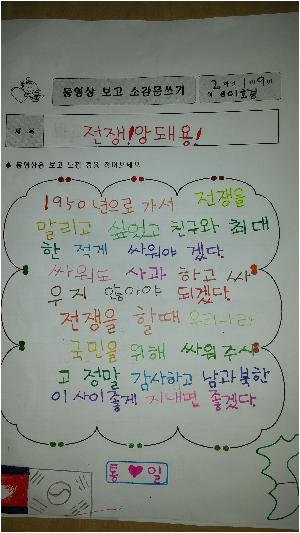 동영상 보고 소감문쓰기
제 목
전쟁!안돼용!
동영상을 보고 느낀 점을 적어보세요
1950년으로 가서 전쟁을
말리고 싶었고 친구와 최대
한 적게 싸워야 겠다.
싸워도 사과 하고 싸
우지 않아야 되겠다.
전쟁을 할때 우리나라
국민을 위해 싸워주시
고 정말 감사하고 남과북한
이 사이좋게 지내면 좋겠다.
통 일